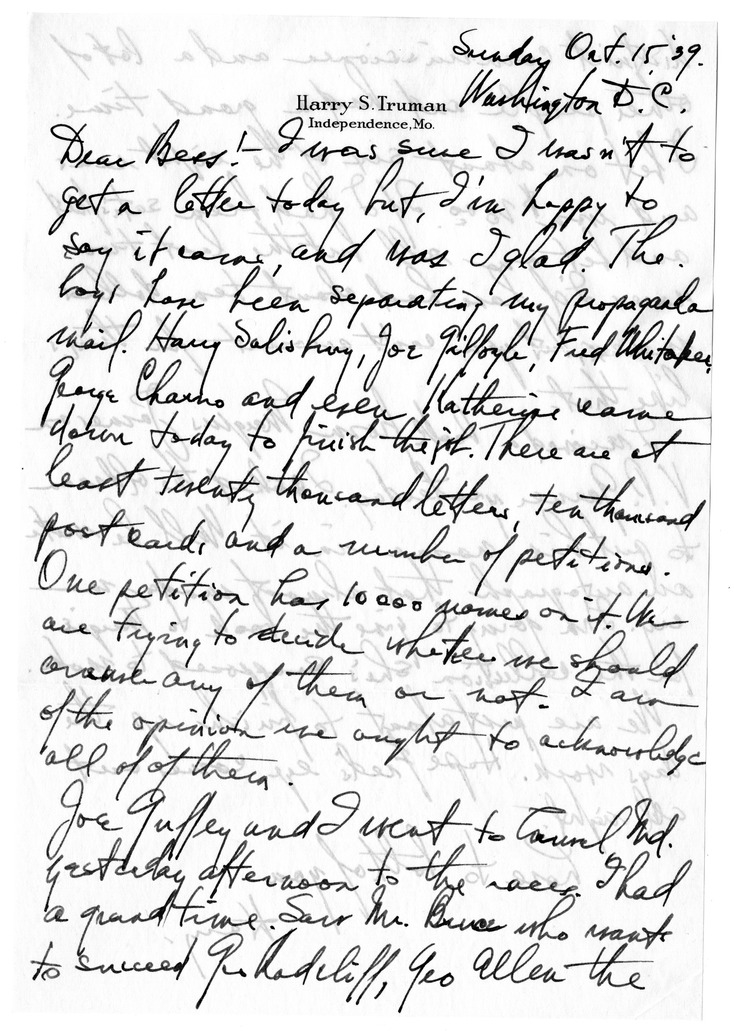 Sunday Oct. 15 '39.
Harry S. Truman Washington D.C.
Independence, Mo.
Dear Bess:- I was sure I wasn't to
get a letter today but, I'm happy to
say it came, and was I glad. The
boys have been separating my propaganda
mail. Harry Salisbury, Joe Gilfoyle, Fred Whitaker,
George Charno and even Katherine came
down today to finish the job. There are at
least twenty thousand letters, ten thousand
post cards and a number of petitions.
One petition has 10000 names on it. We
are trying to decide whether we should
answer any of them or not. I am
of the opinion we ought to acknowledge
all of of them.
Joe Guffey and I went to Laurel Md.
yesterday afternoon to the races. I had
a grand time. Saw Mr. Bruce who wants
to succeed Geo Radcliff, Geo Allen the